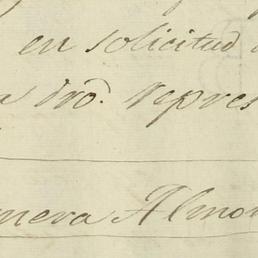 en solicitud
dro. repres
nera Almon